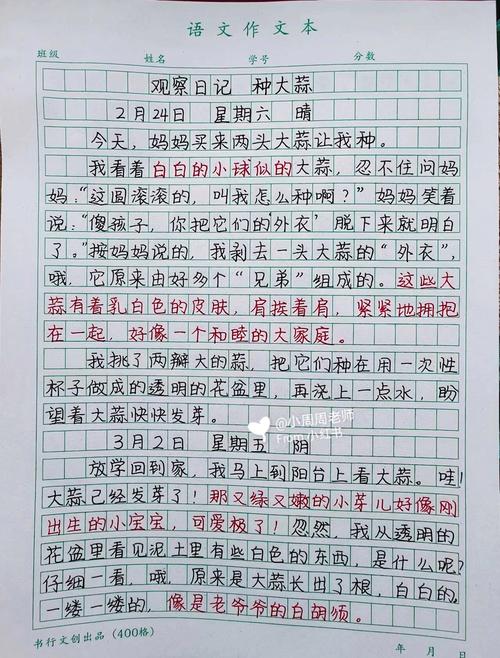 语文作文本
班级 姓名 学号 分数
观察日记 种大蒜
2月24日 星期六 晴
今天，妈妈买来两头大蒜让我种。
我看着白白的小球似的大蒜，忍不住问妈
妈：“这圆滚滚的，叫我怎么种啊？”妈妈笑着
说：“傻孩子，你把它们的‘外衣’脱下来就明白
了。”按妈妈说的，我剥去一头大蒜的“外衣”，
哦，它原来由好多个“兄弟”组成的。这些大
蒜有着乳白色的皮肤，肩挨着肩，紧紧地拥抱
在一起，好像一个和睦的大家庭。
我挑了两瓣大的蒜，把它们种在用一次性
杯子做成的透明的花盆里，再浇上一点水，盼
望着大蒜快快发芽。
@小周周老师
From 小红书
3月2日 星期五 阴
放学回到家，我马上到阳台上看大蒜。哇！
大蒜已经发芽了！那又绿又嫩的小芽儿好像刚
出生的小宝宝，可爱极了！忽然，我从透明的
花盆里看见泥土里有些白色的东西，是什么呢？
仔细一看，哦，原来是大蒜长出了根，白白的，
一缕一缕的，像是老爷爷的白胡须。
书行文创出品（400格） 年 月 日